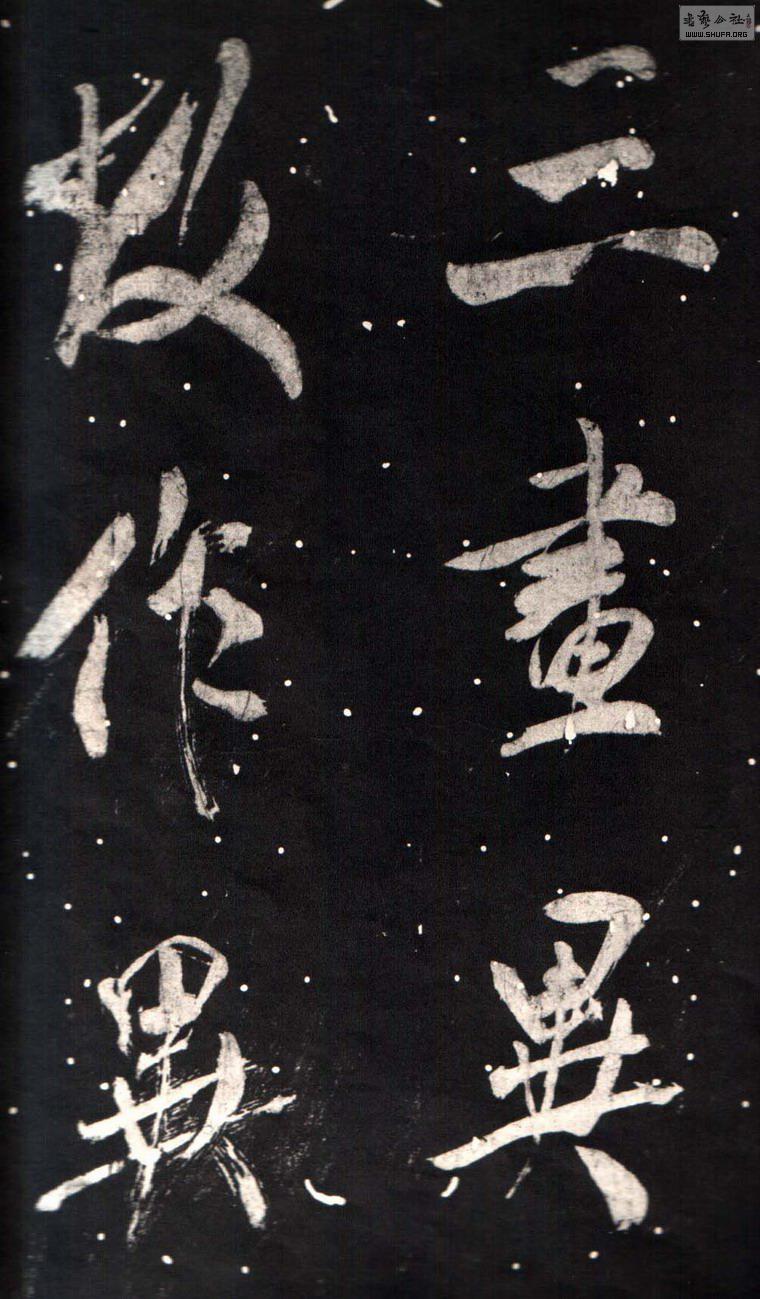 書藝公社
WWW.SHUFA.ORG
三畫異
故作異